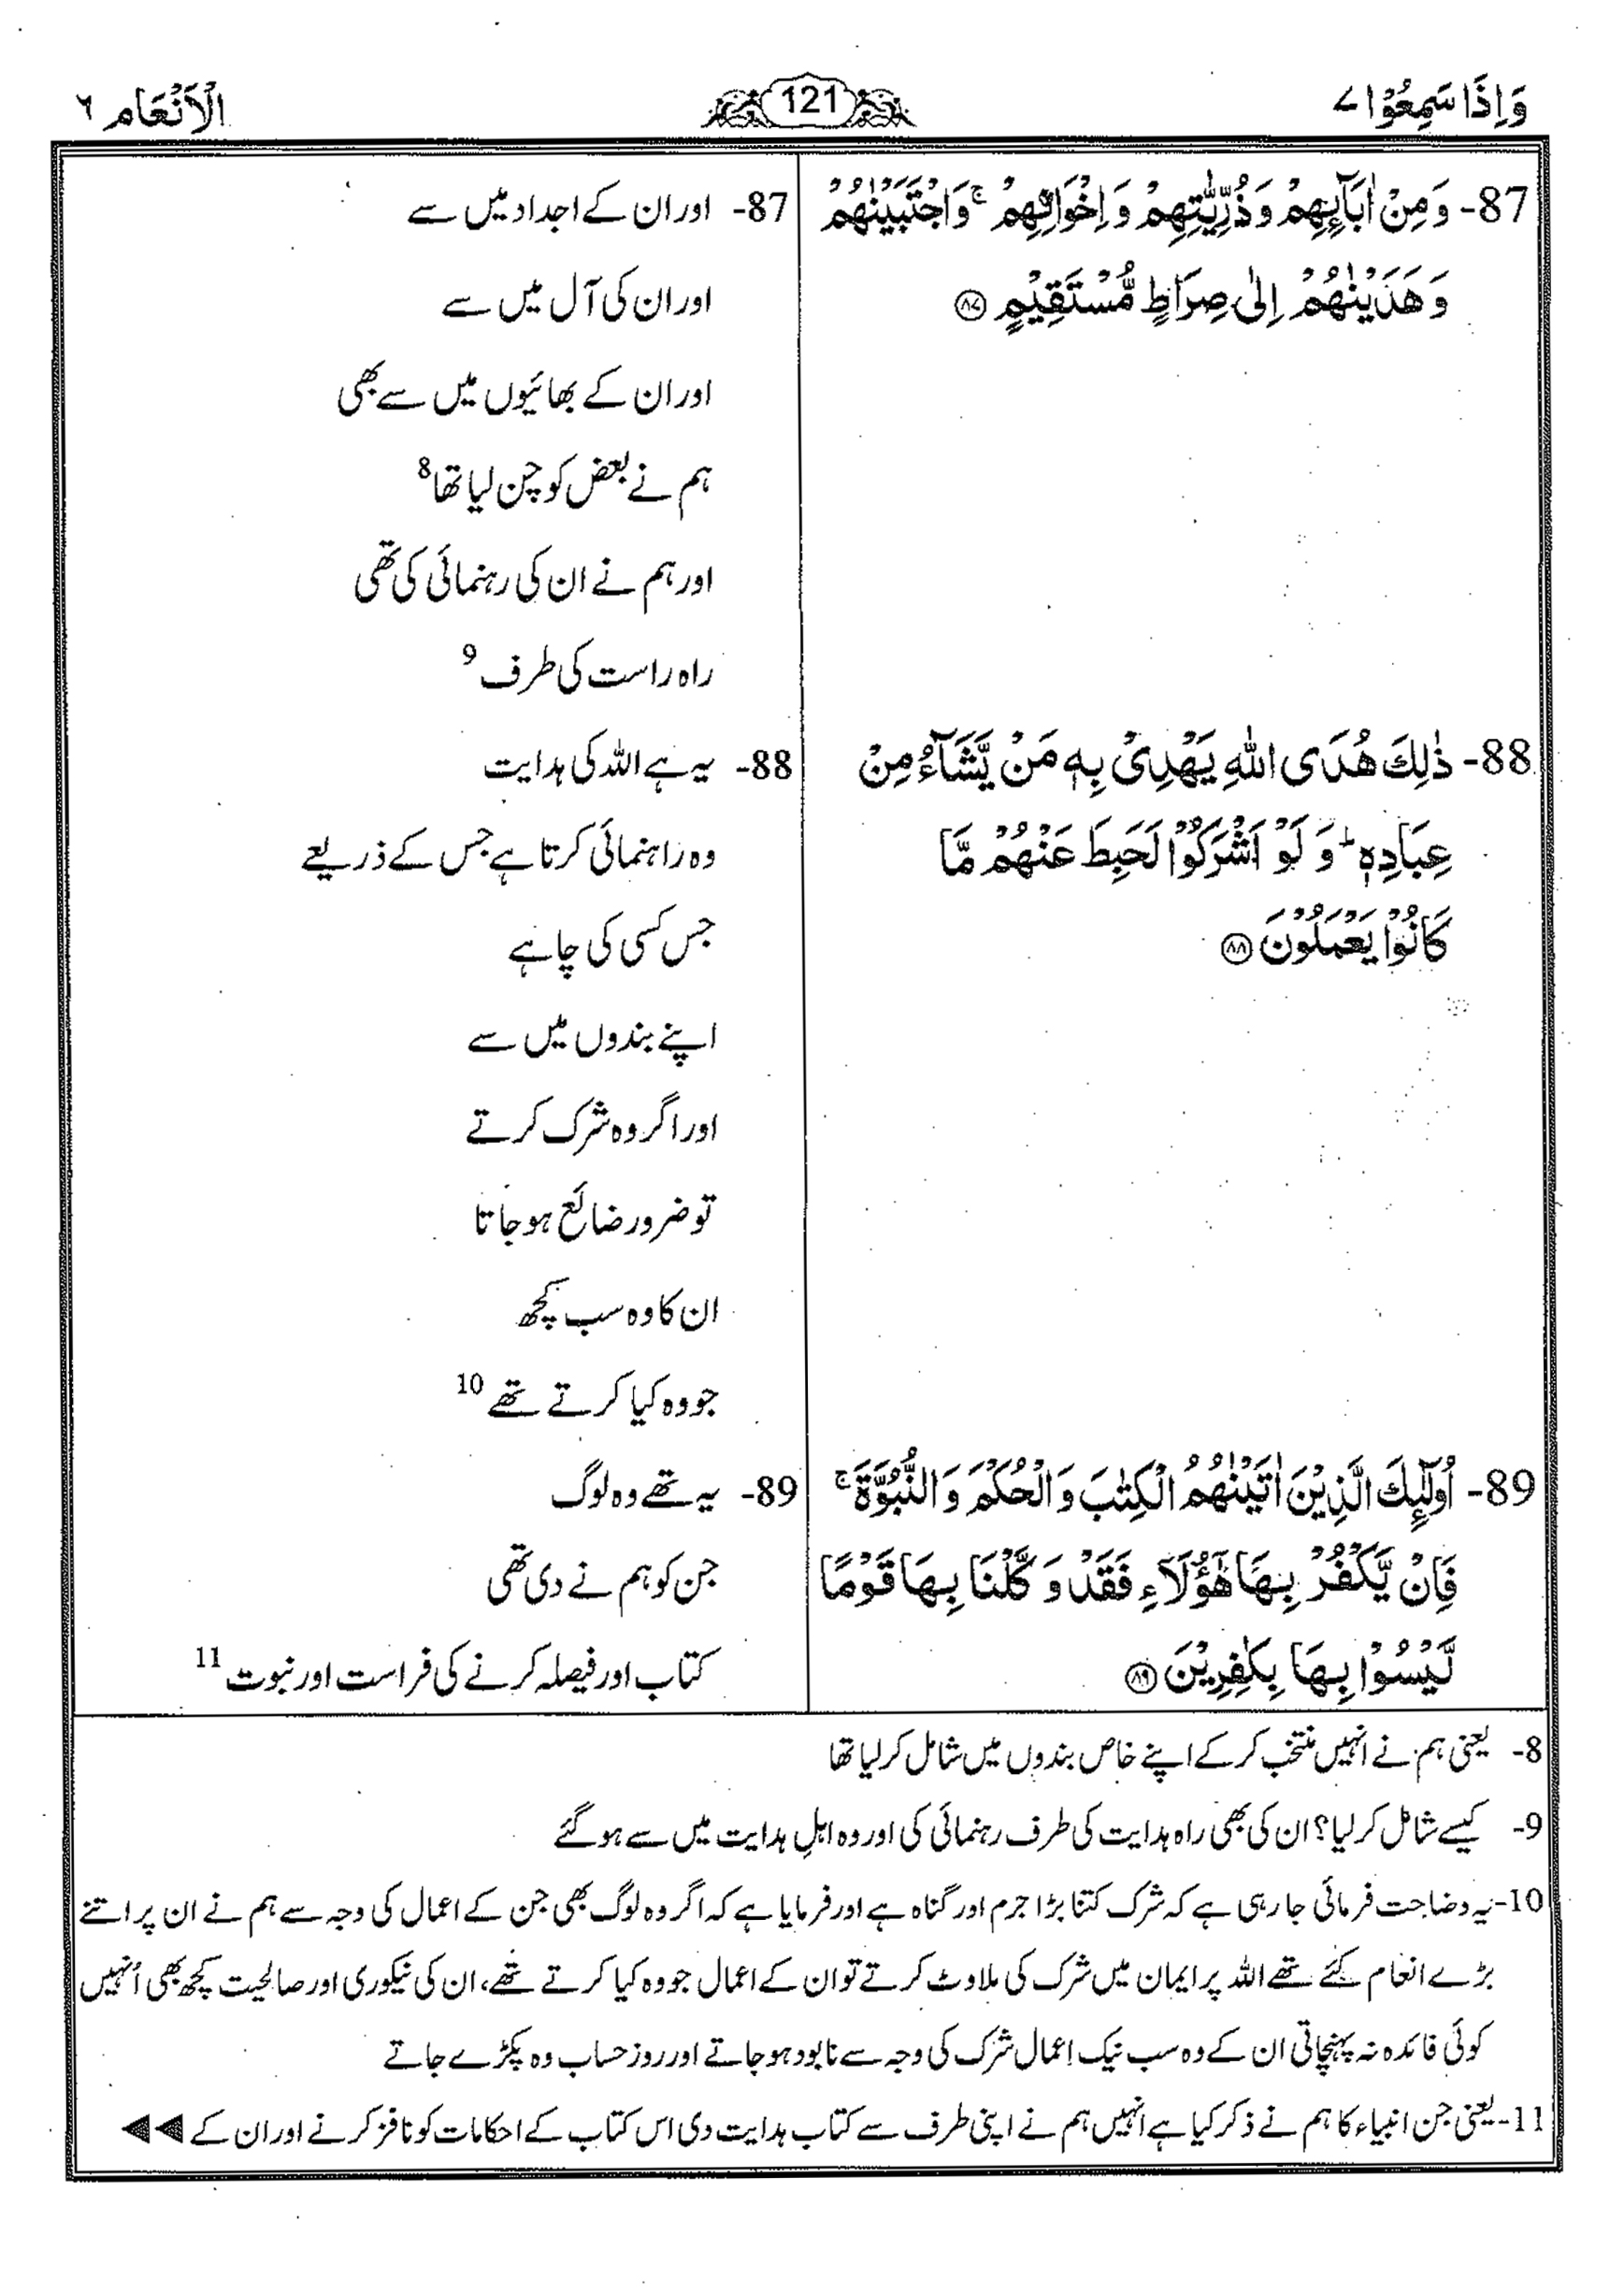 وَاِذَا سَمِعُوْا ٧
121
الْاَنْعَام ٦
87- وَمِنْ اٰبَآئِهِمْ وَذُرِّيّٰتِهِمْ وَاِخْوَانِهِمْ ۚ وَاجْتَبَيْنٰهُمْ
وَهَدَيْنٰهُمْ اِلٰى صِرَاطٍ مُّسْتَقِيْمٍ ﴿٨٧﴾
88- ذٰلِكَ هُدَى اللّٰهِ يَهْدِىْ بِهٖ مَنْ يَّشَآءُ مِنْ
عِبَادِهٖ ؕ وَلَوْ اَشْرَكُوْا لَحَبِطَ عَنْهُمْ مَّا
كَانُوْا يَعْمَلُوْنَ ﴿٨٨﴾
89- اُولٰٓئِكَ الَّذِيْنَ اٰتَيْنٰهُمُ الْكِتٰبَ وَالْحُكْمَ وَالنُّبُوَّةَ ۚ
فَاِنْ يَّكْفُرْ بِهَا هٰٓؤُلَآءِ فَقَدْ وَكَّلْنَا بِهَا قَوْمًا
لَّيْسُوْا بِهَا بِكٰفِرِيْنَ ﴿٨٩﴾
87- اور ان کے اجداد میں سے
اور ان کی آل میں سے
اور ان کے بھائیوں میں سے بھی
ہم نے بعض کو چن لیا تھا 8
اور ہم نے ان کی رہنمائی کی تھی
راہ راست کی طرف 9
88- یہ ہے اللہ کی ہدایت
وہ راہنمائی کرتا ہے جس کے ذریعے
جس کسی کی چاہے
اپنے بندوں میں سے
اور اگر وہ شرک کرتے
تو ضرور ضائع ہو جاتا
ان کا وہ سب کچھ
جو وہ کیا کرتے تھے 10
89- یہ تھے وہ لوگ
جن کو ہم نے دی تھی
کتاب اور فیصلہ کرنے کی فراست اور نبوت 11
8- یعنی ہم نے انہیں منتخب کر کے اپنے خاص بندوں میں شامل کر لیا تھا
9- کیسے شامل کر لیا؟ ان کی بھی راہ ہدایت کی طرف رہنمائی کی اور وہ اہلِ ہدایت میں سے ہو گئے
10- یہ وضاحت فرمائی جا رہی ہے کہ شرک کتنا بڑا جرم اور گناہ ہے اور فرمایا ہے کہ اگر وہ لوگ بھی جن کے اعمال کی وجہ سے ہم نے ان پر اتنے
بڑے انعام کئے تھے اللہ پر ایمان میں شرک کی ملاوٹ کرتے تو ان کے اعمال جو وہ کیا کرتے تھے، ان کی نیکوری اور صالحیت کچھ بھی اُنہیں
کوئی فائدہ نہ پہنچاتی ان کے وہ سب نیک اعمال شرک کی وجہ سے نابود ہو جاتے اور روز حساب وہ پکڑے جاتے
11- یعنی جن انبیاء کا ہم نے ذکر کیا ہے انہیں ہم نے اپنی طرف سے کتاب ہدایت دی اس کتاب کے احکامات کو نافز کرنے اور ان کے ◀◀